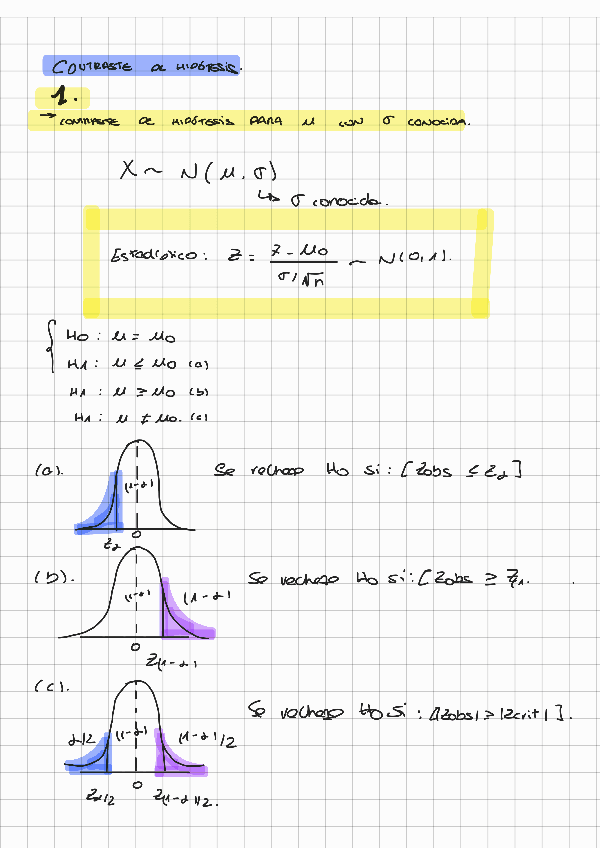 CONTRASTE DE HIPÓTESIS.
1.
→ CONTRASTE DE HIPÓTESIS PARA μ CON σ CONOCIDA.
X ~ N(μ, σ)
↳ σ conocida.
Estadístico: Z = (x̄ - μ0) / (σ/√n) ~ N(0,1).
H0: μ = μ0
H1: μ ≤ μ0 (a)
H1: μ ≥ μ0 (b)
H1: μ ≠ μ0. (c)
(a). Se rechaza H0 si: [Zobs ≤ Zα]
(1-α)
0
Zα
(b). Se rechaza H0 si: [Zobs ≥ Z1.
(1-α) (1-α)
0
Z(1-α)
(c).
Se rechaza H0 si: [|Zobs| > |Zcrit|].
α/2 (1-α) (1-α)/2
0
Zα/2 Z(1-α)/2.